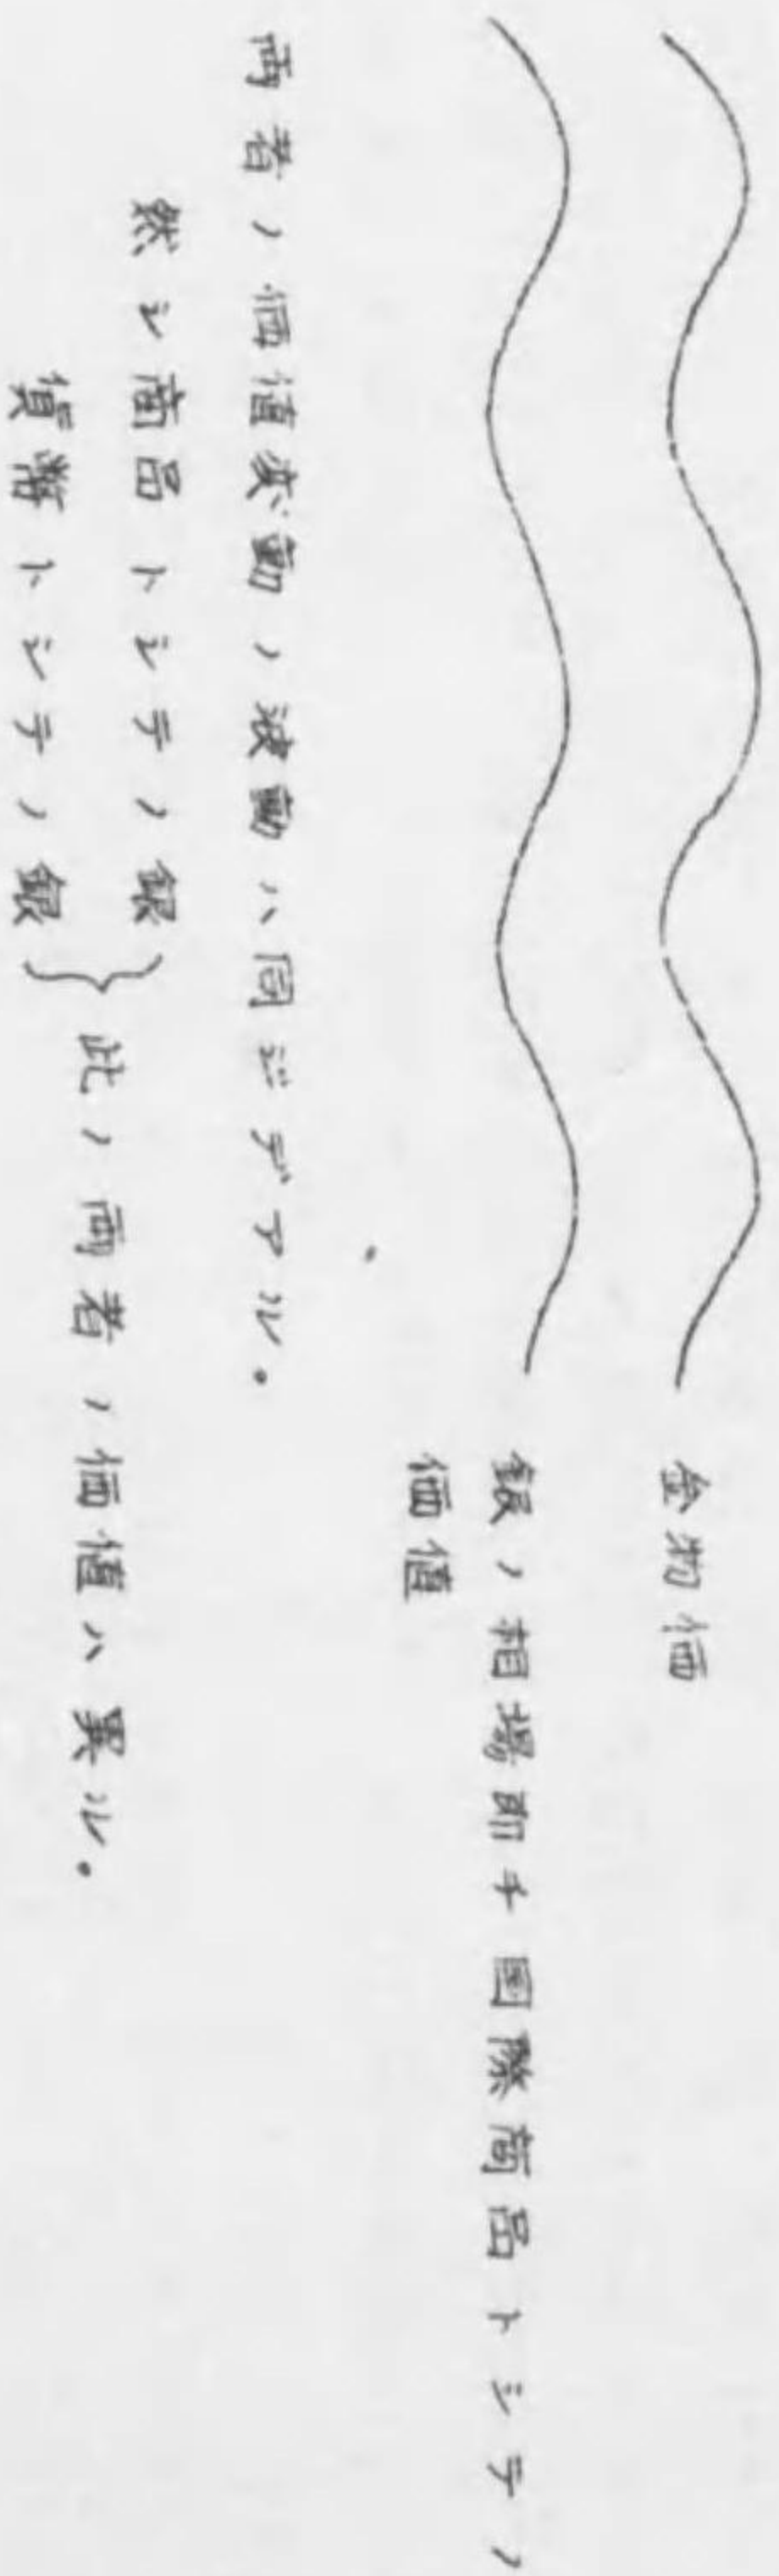 金物価
銀ノ相場即チ国際商品トシテノ
価値
両者ノ価値変動ノ波動ハ同ジデアル。
然シ商品トシテノ銀
貨幣トシテノ銀
此ノ両者ノ価値ハ異ル。